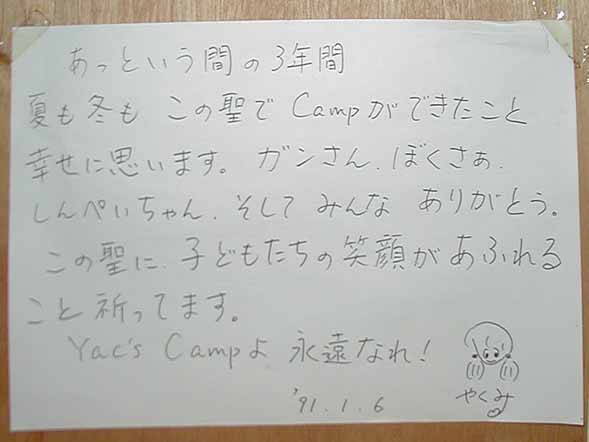 あっという間の3年間
夏も冬も この聖で Campができたこと
幸せに思います。ガンさん、ぼくさぁ、
しんぺいちゃん、そして みんな ありがとう。
この聖に、子どもたちの笑顔があふれる
こと祈ってます。
Yac's Campよ 永遠なれ!
'91.1.6
やくみ